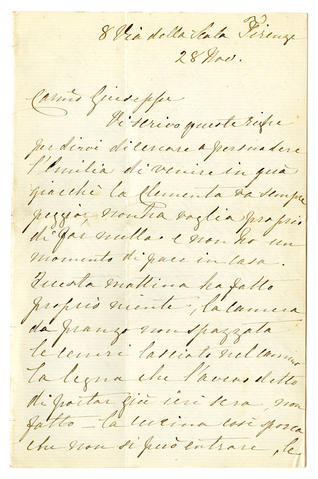 8 Via della Scala Firenze
28 Nov.
Carmo Giuseppe
Vi scrivo queste righe
per dirvi di cercare a persuadere
l'Emilia di venire in quà
giacchè la Clementa va sempre
peggio, non ha voglia proprio
di far nulla e non ho un
momento di pace in casa.
Questa mattina ha fatto
proprio niente, la camera
da pranzo non spazzata
le ceneri lasciate nel camino
la legna che l'aveva detto
di portar giù ieri sera non
fatto — la cucina così sporca
che non si può entrare, le